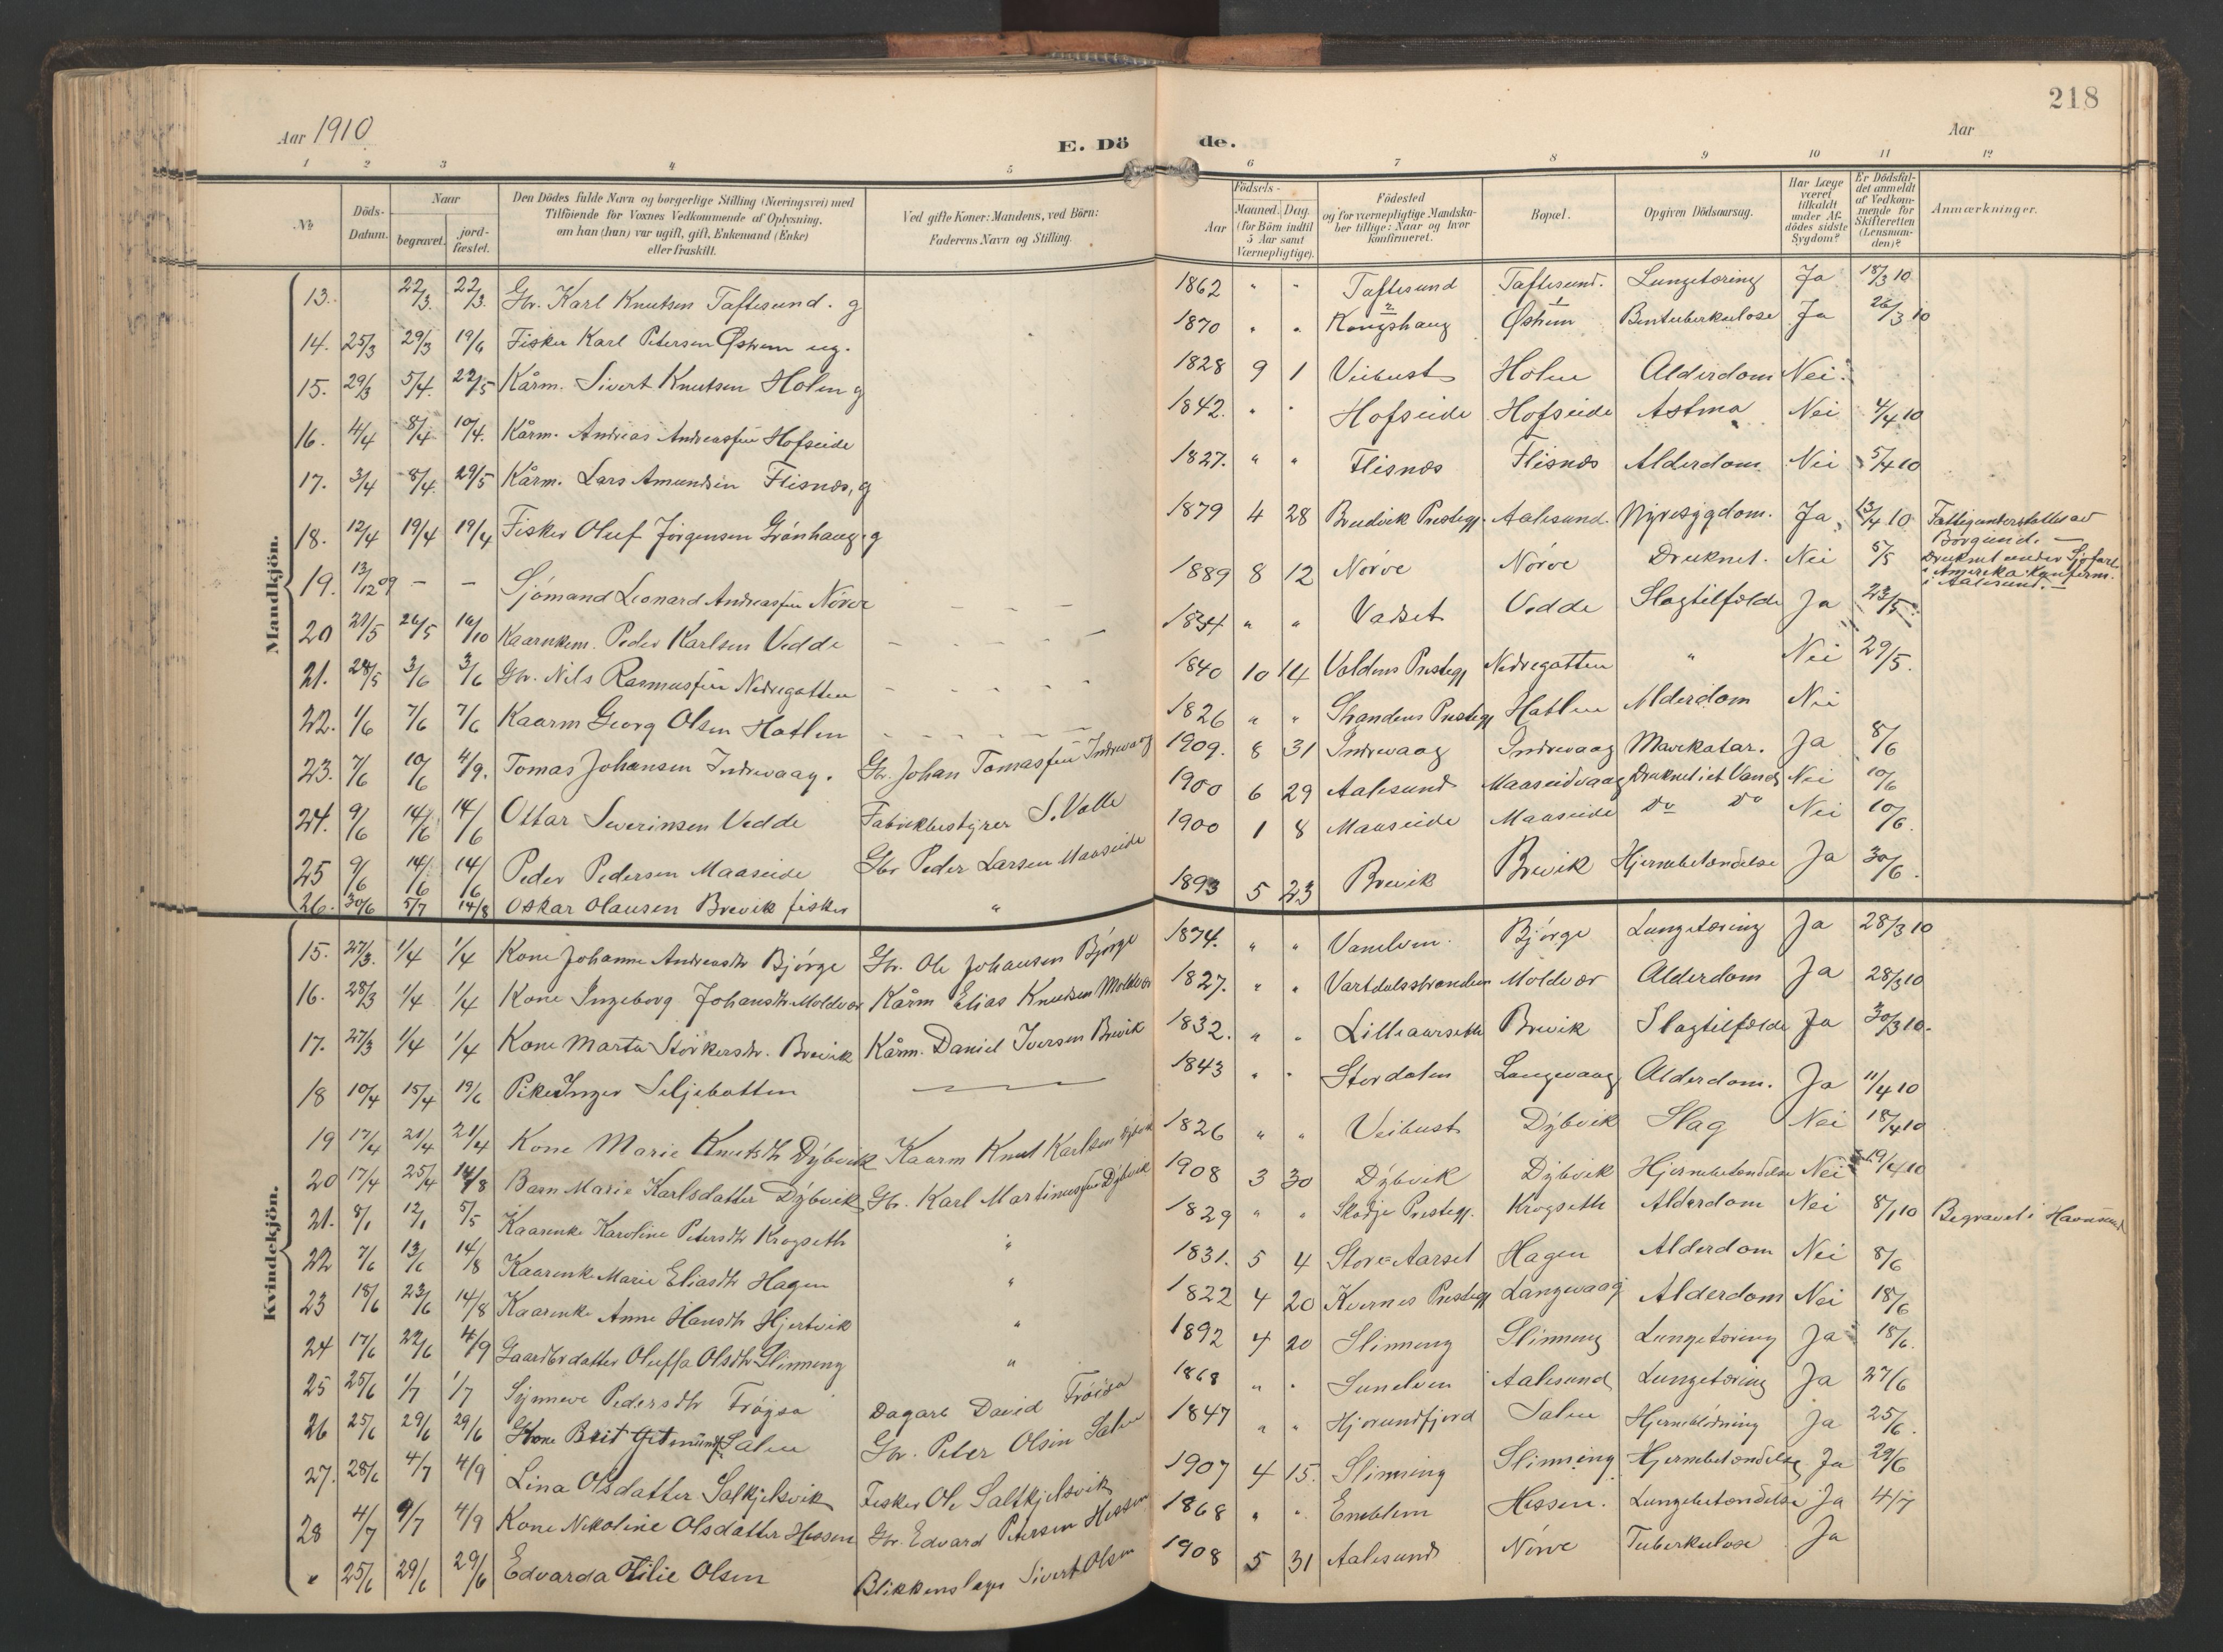 218
Aar 1910
E. Dö de.
Aar
1 2 3 4 5 6 7 8 9 10 11 12
№
Döds-Datum.
Naar
begravet.
jord-fæstet.
Den Dödes fulde Navn og borgerlige Stilling (Næringsvei) med
Tilföiende for Voxnes Vedkommende af Oplysning,
om han (hun) var ugift, gift, Enkemand (Enke)
eller fraskilt.
Ved gifte Koner: Mandens, ved Börn:
Faderens Navn og Stilling.
Födsels-
Aar
Maaned. Dag.
(for Börn indtil
5 Aar samt
Værnepligtige).
Födested
og for værnepligtige Mandska-
ber tillige: Naar og hvor
konfirmeret.
Bopæl.
Opgiven Dödsaarsag.
Har Læge
været
tilkaldt
under Af-
dödes sidste
Sygdom?
Er Dödsfal-
det anmeldt
af Vedkom-
mende for
Skifteretten
(Lensman-
den)?
Anmærkninger.
Mandkjön.
13. 22/3. 22/3. Gbr. Karl Knutsen Taftesund. g 1862 " " Taftesund Taftesund. Lungetæring Ja 18/3 10
14. 25/3 29/3 19/6 Fisker Karl Petersen Østrem ug. 1870 " " Kongshaug Østrem Bentuberkulose Ja 26/3 10
15. 29/3 5/4. 22/5 Kårm. Sivert Knutsen Holen g 1828 9 1 Veibust Holen Alderdom Nei.
16. 4/4 8/4 10/4. Kårm. Andreas Andreassen Hofseide 1842. " " Hofseide Hofseide Astma Nei 4/4 10
17. 3/4 8/4. 29/5 Kårm. Lars Amundsen Flisnæs, g 1827. " " Flisnæs Flisnæs Alderdom Nei 5/4 10
18. 12/4 19/4 19/4 Fisker Oluf Jörgensen Grönhaug. g 1879 4 28 Bredvik Prestegj. Aalesund. Nyresygdom. Ja 13/4 10 Fattigunderstøttet av Borgund. —
19. 13/12 09 — — Sjömand Leonard Andreassen Nörve — — — 1889 8 12 Nörve Nörve Druknet. Nei 5/5 Druknet under Sjøfart i Amerika. Konfirm. i Aalesund. —
20 21/5 26/5 16/10 Kaarenkem. Peder Karlsen Vedde — — — 1834 " " Vadset Vedde Slagtilfælde Ja 23/5
21. 28/5 3/6 3/6 Gbr. Nils Rasmussen Nedregotten - - - - 1840 10 14 Voldens Prestegj Nedregotten " Nei 29/5.
22. 1/6 7/6 7/6 Kaarm Georg Olsen Hatlen - - - - 1826 " " Strandens Prestegj Hatlen Alderdom Nei
23. 7/6 10/6 4/9. Tomas Johansen Indrevaag. Gbr. Johan Tomassen Indrevaag 1909. 8 31 Indrevaag Indrevaag Mavekatar. Ja 8/6
24. 9/6 14/6 14/6 Ottar Severinsen Vedde Fabrikbestyrer S. Valle 1900 6 29 Aalesund Maaseidvaag Druknet i et Vand Nei 10/6
25 9/6 14/6 14/6 Peder Pedersen Maaseide Gbr Peder Larsen Maaseide 1900 1 8 Maaseide Maaseide Do Do Nei 10/6.
26. 30/6 5/7 14/8 Oskar Olausen Brevik fisker " 1893 5 23 Brevik Brevik Hjernebetændelse Ja 30/6.
Kvindekjön.
15. 27/3. 1/4 1/4 Kone Johanne Andreasdtr Björge Gbr. Ole Johansen Björge 1874. " " Vanelven. Björge Lungetæring Ja 28/3 10
16. 28/3 1/4 1/4 Kone Ingeborg Johansdtr Moldvær Kårm Elias Knudsen Moldvær 1827. " " Vartdalsstranden Moldvær Alderdom Ja 28/3 10
17. 27/3 1/4 1/4 Kone Marta Störkersdtr. Brevik Kårm. Daniel Iversen Brevik 1832. " " Lilleaarseth Brevik Slagtilfælde Ja 30/3 10.
18 10/4 15/4 19/6 Pike Inger Seljebotten — 1843 " " Stordalen Langevaag Alderdom. Ja 11/4 10
19 17/4 21/4 21/4 Kone Marie Knutsdtr Dybvik Kaarm Knut Karlsen Dybvik 1826 " " Veibust Dybvik Slag Nei 18/4 10
20 17/4 25/4 14/8 Barn Marie Karlsdatter Dybvik Gbr. Karl Martinussen Dybvik 1908 3 30 Dybvik Dybvik Hjernebetændelse Nei 19/4 10
21. 8/1 12/1 5/5 Kaarenke Karoline Petersdtr Krogseth " 1829 " " Skodje Prestegj. Krogseth Alderdom Nei 8/1 10 Begravet i
22 7/6 13/6 14/8 Kaarenke Marie Eliasdtr Hagen " 1831. 5 4 Store Aarset Hagen Alderdom Nei 8/6
23 18/6 23/6 14/8 Kaarenke Anne Hansdtr Hjertvik " 1822 4 20 Kvernes Prestegj Langevaag Alderdom Nei 18/6
24 17/6 22/6 4/9 Gaardbrdatter Oluffa Olsdtr Slinning " 1892 4 20 Slinning Slinning Lungetæring Ja 18/6.
25 25/6 1/7 1/7 Synneve Pedersdtr Fröysa Dagarb David Fröisa 1868 " " Sunelven Aalesund Lungetæring Ja 27/6
26 25/6 29/6 29/6 Kone Brit Salen Gbr. Peter Olsen Salen 1847 " " Hjørundfjord Salen Hjerneblödning Ja 25/6.
27. 28/6 4/7 4/9 Lina Olsdatter Saltkjelsvik Fisker Ole Saltkjelsvik 1907 4 15. Slinning Slinning Hjernebetændelse Ja 29/6
28 4/7 9/7 4/9 Kone Nikoline Olsdatter Hessen Gbr. Edvard Petersen Hessen 1868 " " Emblem Hessen. Lungebetændelse Ja 4/7
" 25/6 29/6 29/6 Edvarda Otilie Olsen Blikkenslager Sivert Olsen 1908 5 31 Aalesund Nörve Tuberkulose Ja